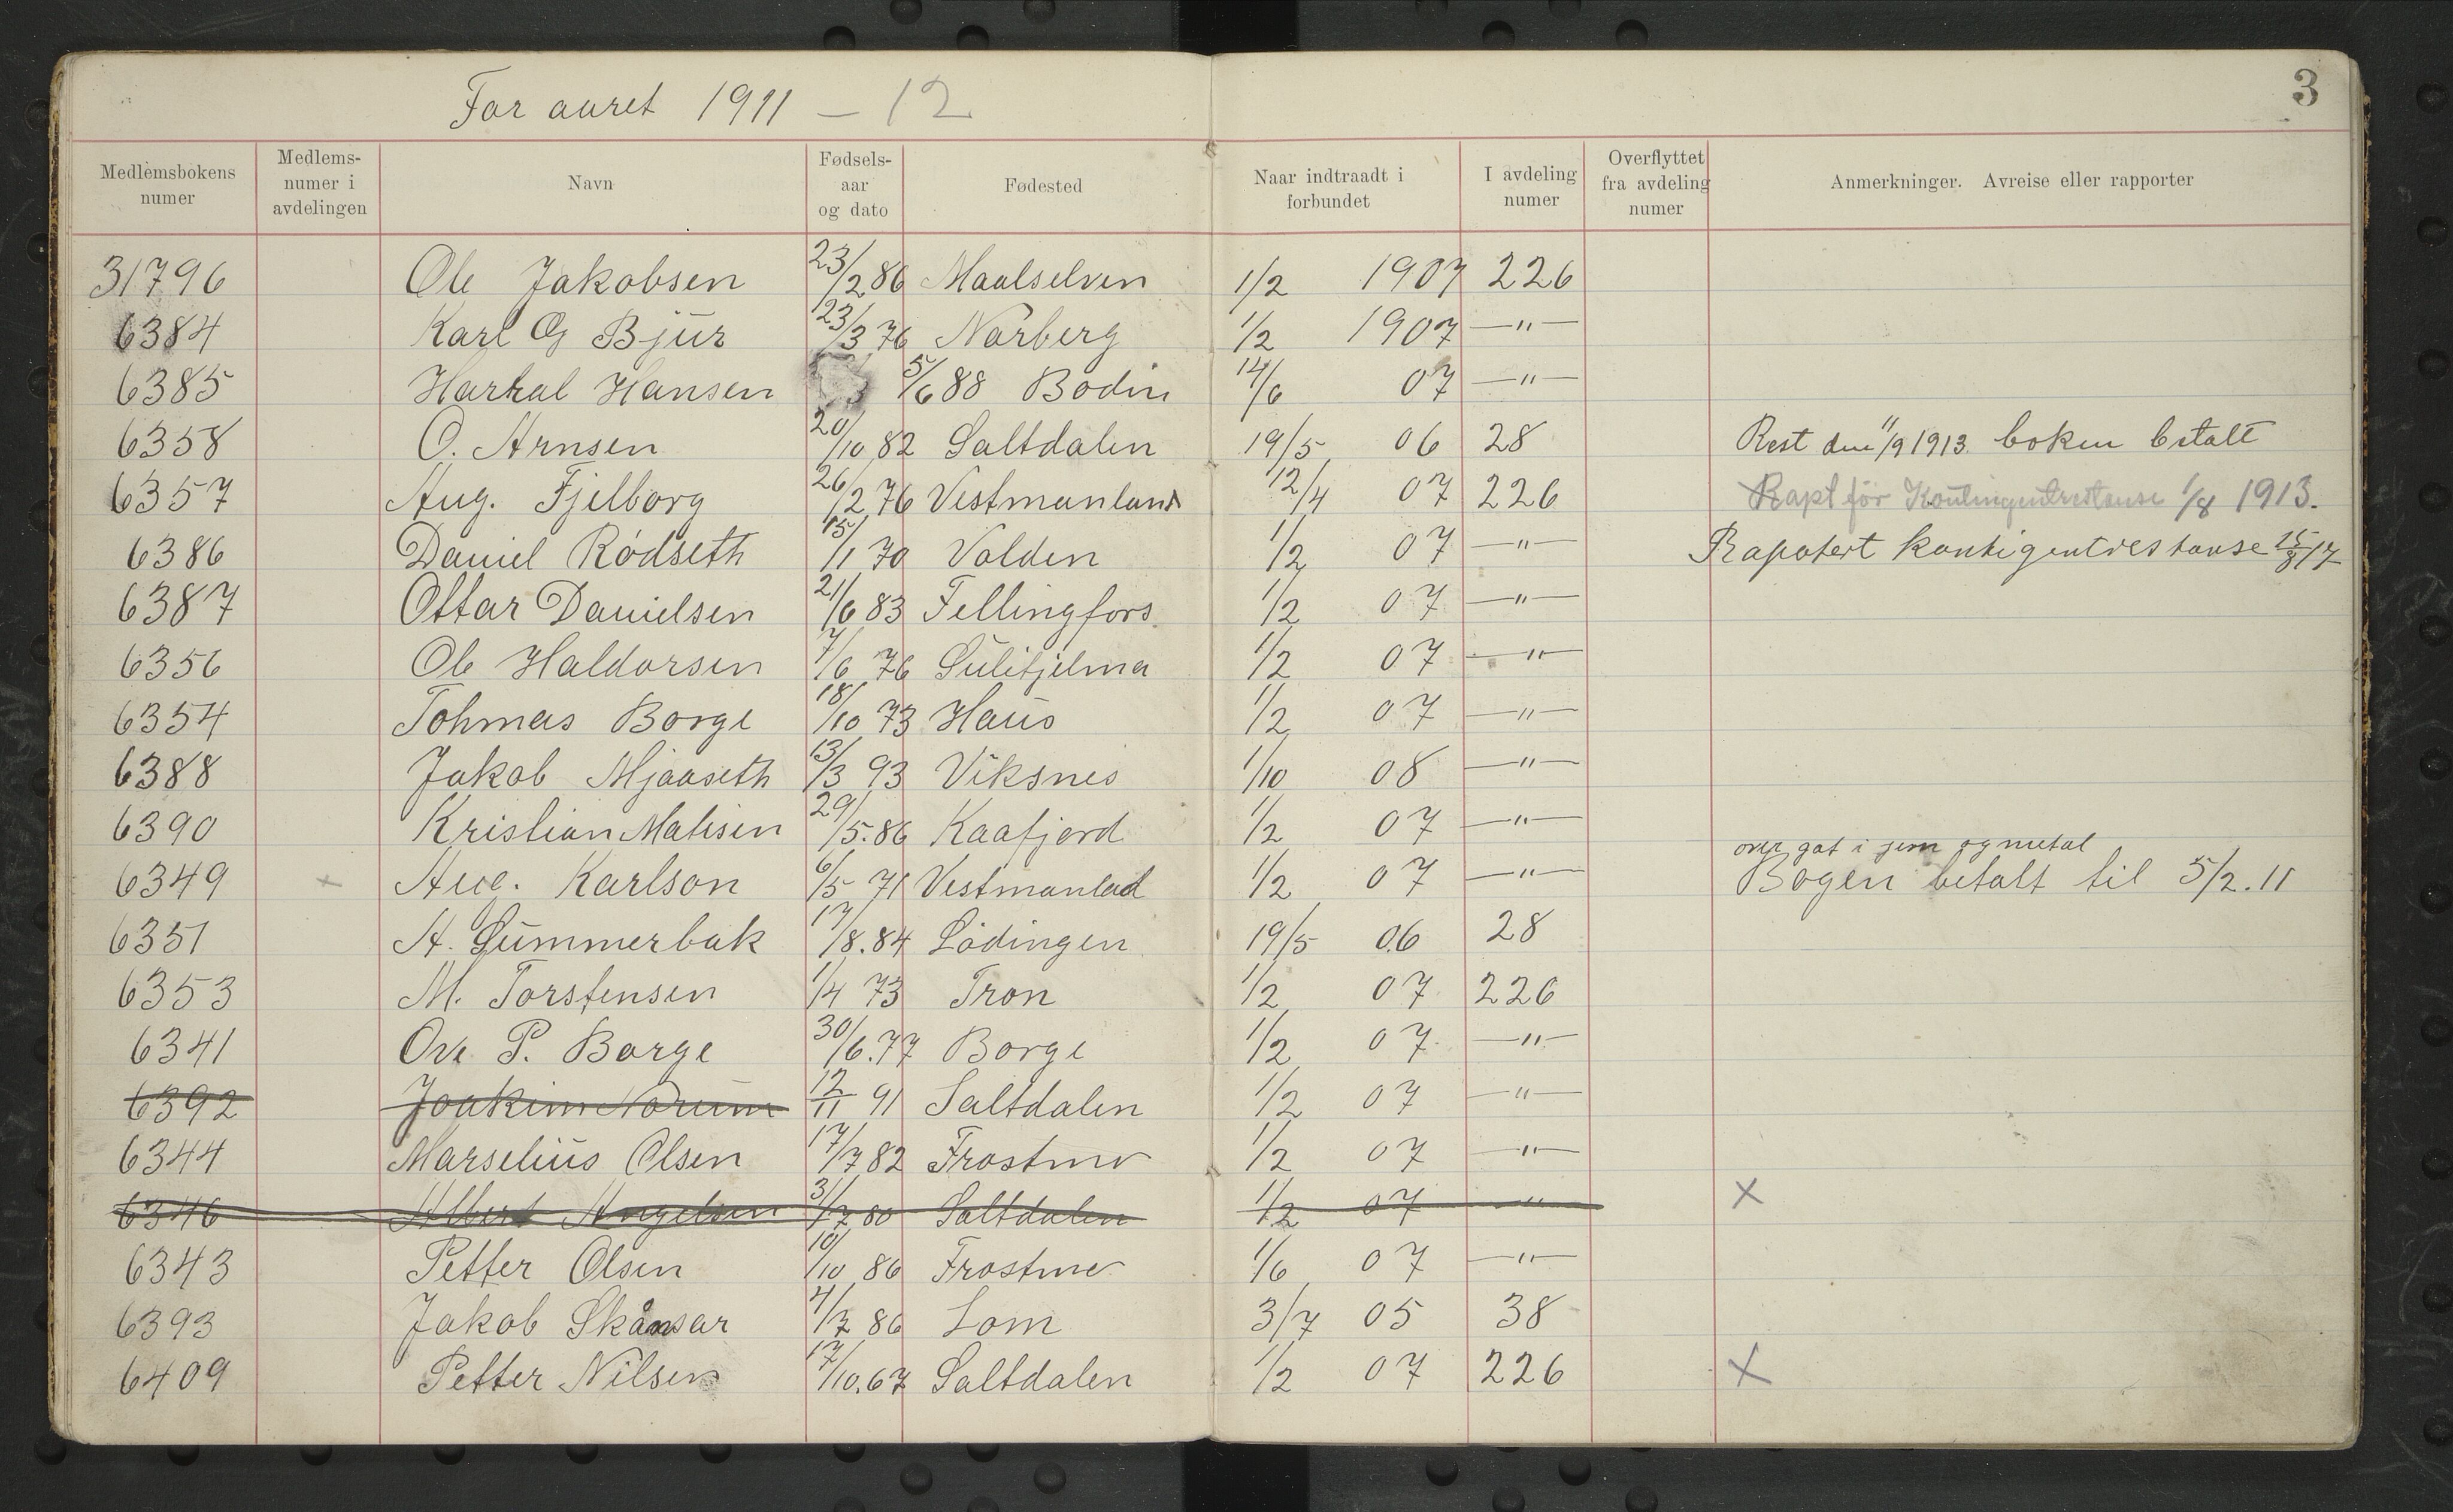 For aaret 1911 – 12
3
Medlemsbokens numer
Medlems- numer i avdelingen
Navn
Fødsels- aar og dato
Fødested
Naar indtraadt i forbundet
I avdeling numer
Overflyttet fra avdeling numer
Anmerkninger. Avreise eller rapporter
31796 Ole Jakobsen 23/2 86 Maalselven 1/2 1907 226
6384 Karl G Bjür 23/3 76 Norberg 1/2 1907 —"—
6385 Harkal Hansen 5/6 88 Bodin 14/6 07 —"—
6358 O. Arnsen 20/10 82 Saltdalen 19/5 06 28 Rest den 11/9 1913. boken betalt
6357 Aug. Fjelborg 26/2 76 Vestmanland 12/4 07 226 Rapt för Kontingentrestanse 1/8 1913.
6386 Daniel Rödseth 15/1 70 Volden 1/2 07 —"— Rapotert kontigentrestanse 15/8 17
6387 Ottar Danielsen 21/6 83 Fellingfors 1/2 07 —"—
6356 Ole Haldorsen 7/6 76 Sülitjelma 1/2 07 —"—
6354 Tohmas Borge 18/10 73 Haüs 1/2 07 —"—
6388 Jakob Mjaaseth 13/3 93 Viksnes 1/10 08 —"—
6390 Kristian Matisen 29/5.86 Kaafjord 1/2 07 —"—
over gat i jern og metal
6349 × Aug. Karlson 6/5 71 Vestmanlad 1/2 07 —"— Bogen betalt til 5/2.11
6351 A. Sümmerbak 17/8.84 Lödingen 19/5 06 28
6353 M. Torstensen 1/4 73 Tron 1/2 07 226
6341 Ove P. Borge 30/6.77 Borge 1/2 07 —"—
6392 Joakim Norum 12/11 91 Saltdalen 1/2 07 —"—
6344 Marselius Olsen 17/7 82 Frostmo 1/2 07 —"—
6346 Albert Angelsen 31/7 80 Saltdalen 1/2 07 —"— ×
6343 Petter Olsen 10/10 86 Frostmo 1/6 07 —"—
6393 Jakob Skånsar 4/7 86 Lom 3/7 05 38
6409 Petter Nilsen 17/10.67 Saltdalen 1/2 07 226 ×